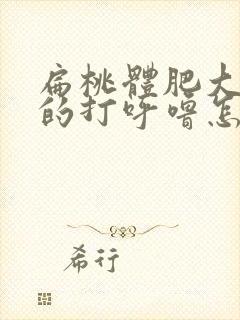 扁桃體肥大
的打呼嚕怎
希行